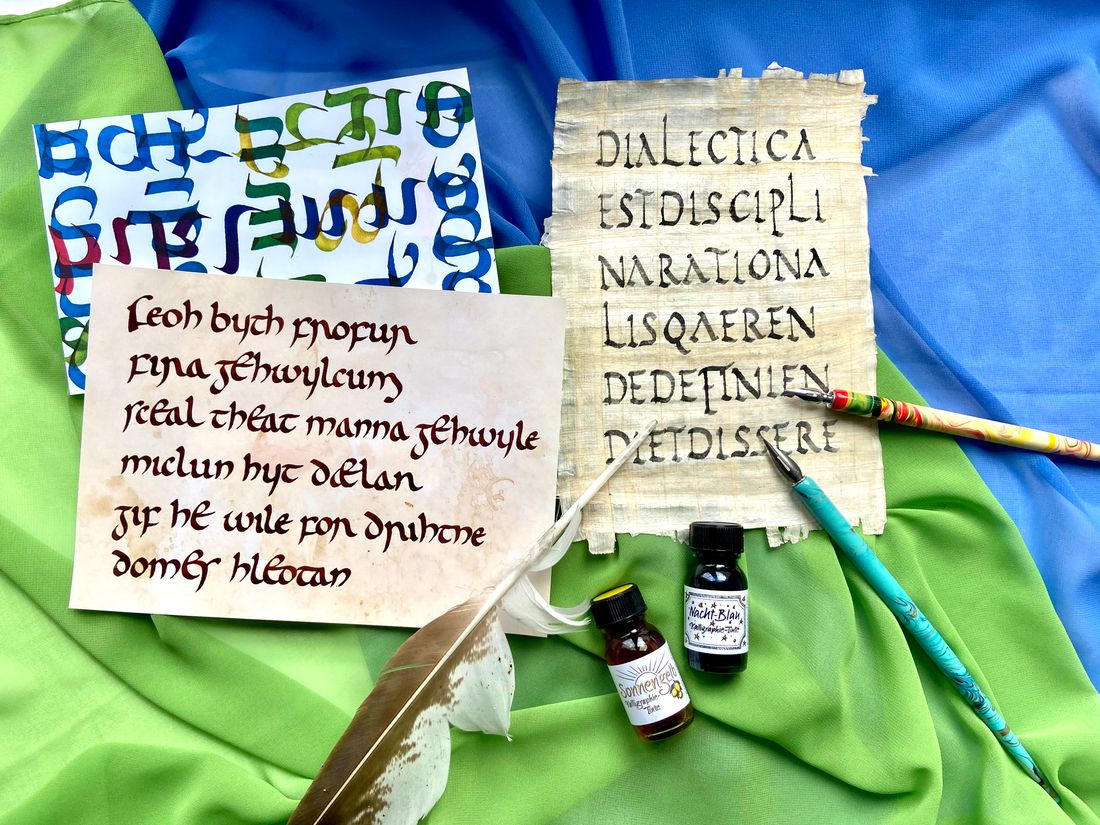 feoh byth frofur
fira gehwylcum
sceal theat manna gehwylc
miclun hyt dælan
gif he wile for drihtne
domes hleotan
DIALECTICA
ESTDISCIPLI
NARATIONA
LISQAEREN
DEDEFINIEN
DIETDISSERE
Nacht-Blau
Kalligraphie-Tinte
Sonnengelb
Kalligraphie-
Tinte